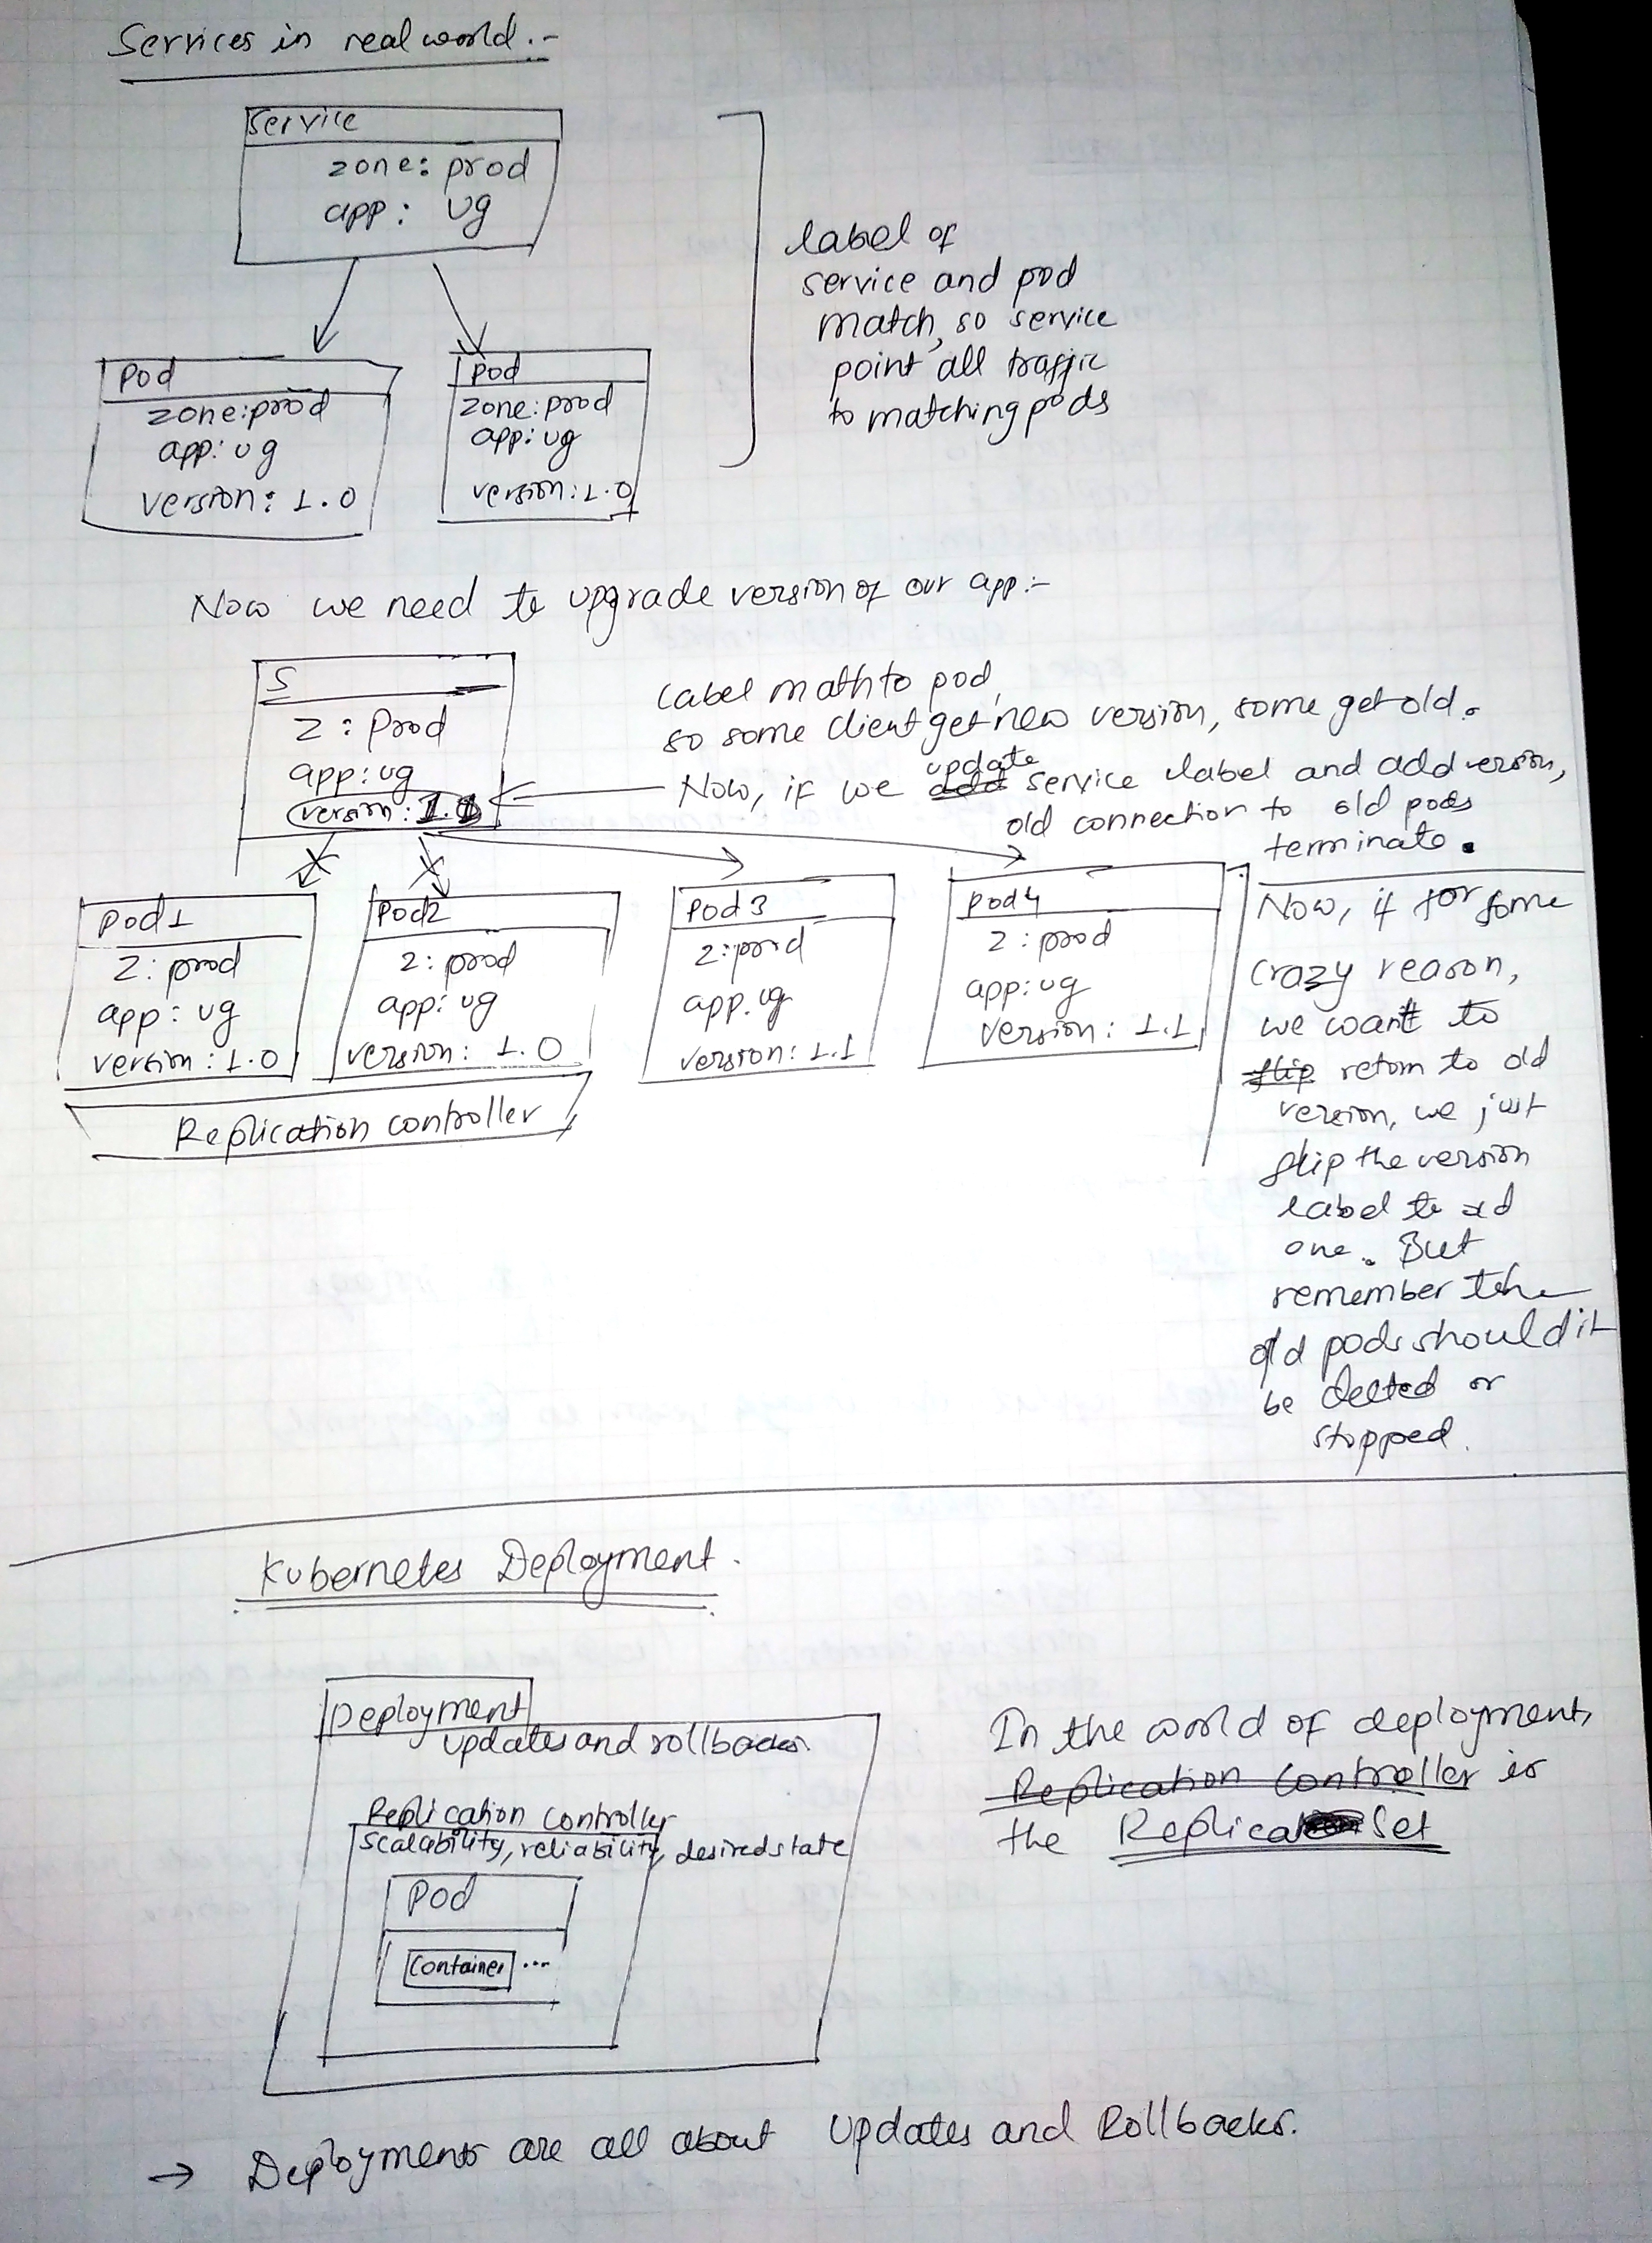 Services in real world :-
Service
zone: prod
app: ug
Pod
zone: prod
app: ug
version: 1.0
Pod
zone: prod
app: ug
version: 1.0
label of
service and pod
match, so service
point all traffic
to matching pods
Now we need to upgrade version of our app :-
S
Z : Prod
app: ug
version: 1.1
Label math to pod,
so some client get new version, some get old.
Now, if we add update service label and add version,
old connection to old pods
terminate.
Pod 1
Z: prod
app: ug
version: 1.0
Pod2
Z: prod
app: ug
version: 1.0
Pod 3
Z: prod
app. ug
version: 1.1
Pod 4
Z : prod
app: ug
version: 1.1
Replication controller
Now, if for some
crazy reason,
we want to
flip return to old
version, we just
flip the version
label to old
one. But
remember the
old pods should
be deleted or
stopped.
Kubernetes Deployment.
Deployment
updates and rollbacks.
Replication controller
scalability, reliability, desired state
Pod
Container ...
In the world of deployment,
Replication Controller is
the Replica Set
→ Deployments are all about Updates and Rollbacks.